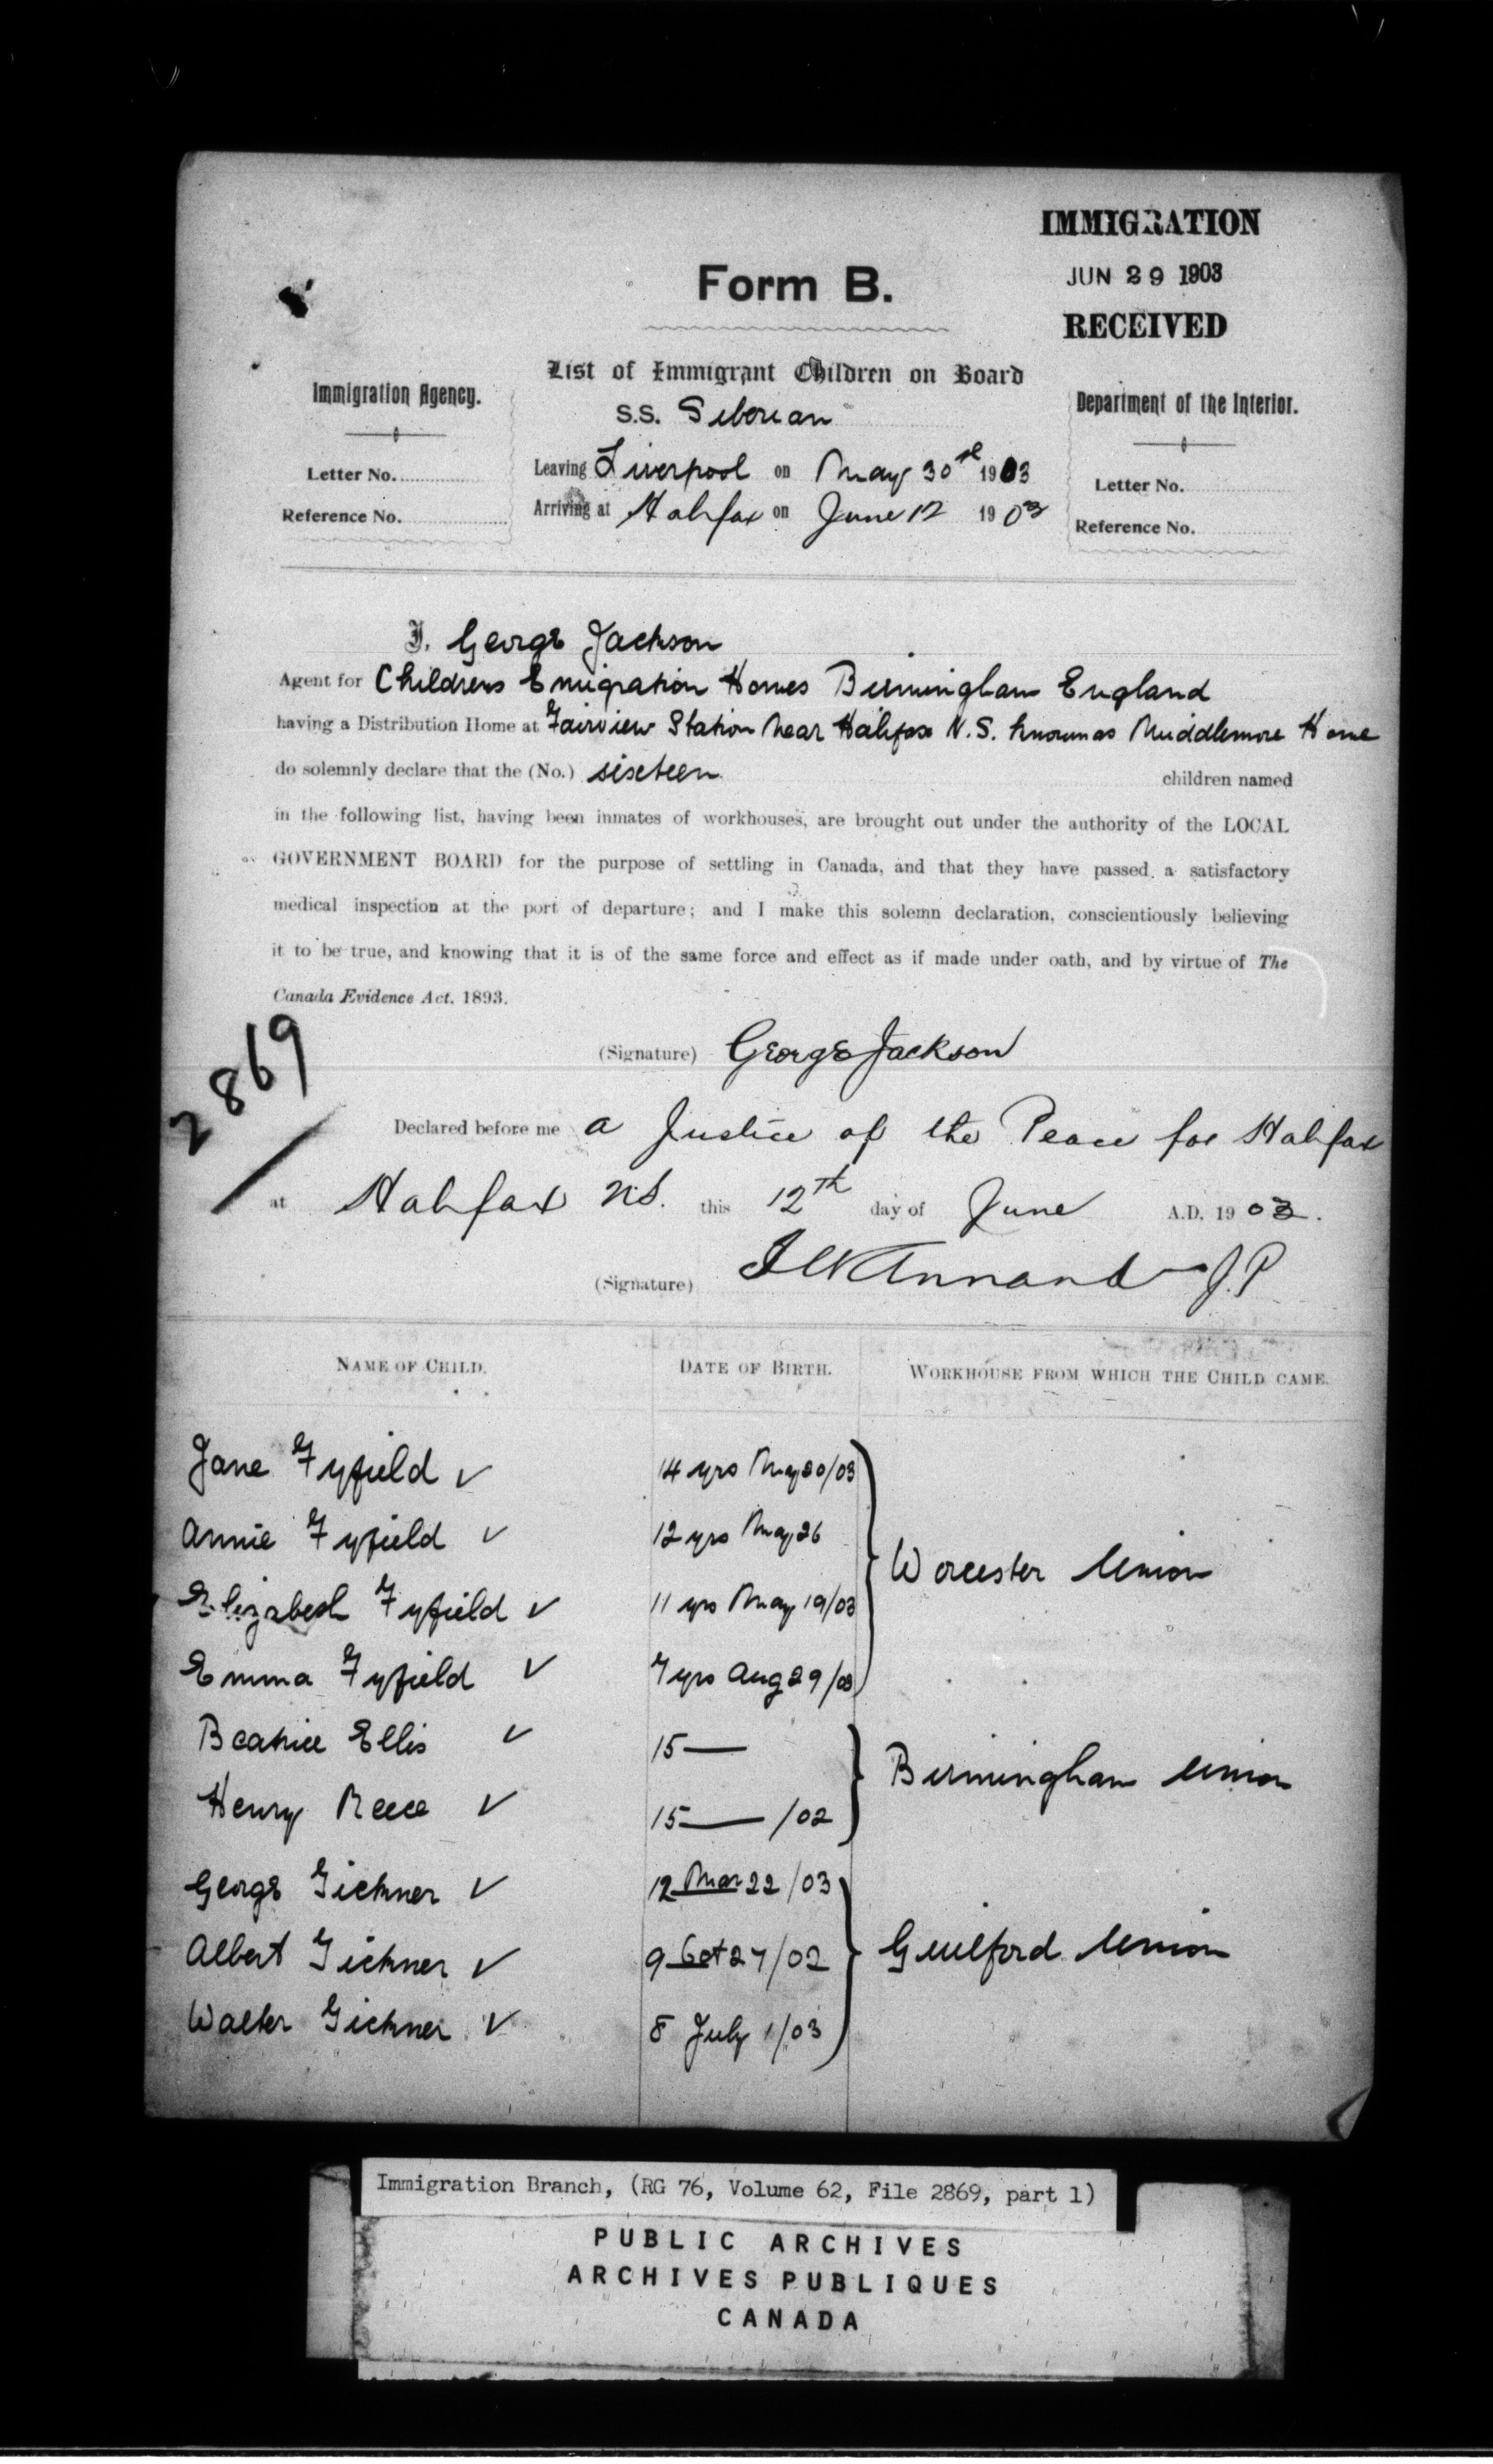 IMMIGRATION
JUN 29 1903
RECEIVED
Form B.
List of Immigrant Children on Board
S.S. Siberian
Immigration Agency.
Letter No.
Reference No.
Leaving Liverpool on May 30st 1903
Arriving at Halifax on June 12 1903
Department of the Interior.
Letter No.
Reference No.
I. George Jackson
Agent for Childrens Emigration Homes Birmingham England
having a Distribution Home at Fairview Station Near Halifax N.S. known as Middlemore Home
do solemnly declare that the (No.) sixteen children named
in the following list, having been inmates of workhouses, are brought out under the authority of the LOCAL
GOVERNMENT BOARD for the purpose of settling in Canada, and that they have passed a satisfactory
medical inspection at the port of departure; and I make this solemn declaration, conscientiously believing
it to be true, and knowing that it is of the same force and effect as if made under oath, and by virtue of The
Canada Evidence Act. 1893.
2869
(Signature) George Jackson
Declared before me a Justice of the Peace for Halifax
at Halifax N.S. this 12th day of June A.D. 1903.
(Signature) Annand J.P
NAME OF CHILD. DATE OF BIRTH. WORKHOUSE FROM WHICH THE CHILD CAME.
Jane Fyfield ✓ 14 yrs May 20/03
Annie Fyfield ✓ 12 yrs May 26
Worcester Union
Elizabeth Fyfield ✓ 11 yrs May 19/03
Emma Fyfield ✓ 7 yrs Aug 29/03
Beatrice Ellis ✓ 15 —
Birmingham Union
Henry Reece ✓ 15 — /02
George Tichner ✓ 12 Mar 22/03
Albert Tichner ✓ 9 Oct 27/02 Guilford Union
Walter Tichner ✓ 8 July 1/03
Immigration Branch, (RG 76, Volume 62, File 2869, part 1)
PUBLIC ARCHIVES
ARCHIVES PUBLIQUES
CANADA